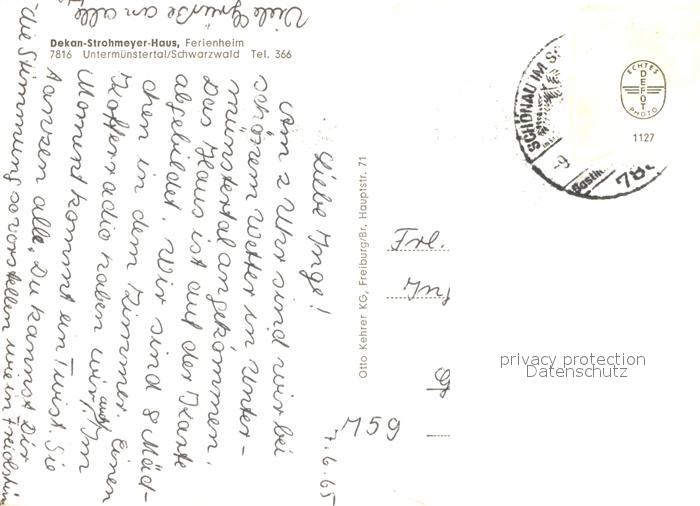 Dekan-Strohmeyer-Haus, Ferienheim
7816 Untermünstertal/Schwarzwald Tel. 366
7.6.65
Liebe Inge!
Am 2 Uhr sind wir bei
schönem Wetter in Unter-
münstertal angekommen.
Das Haus ist auf der Karte
abgebildet. Wir sind 8 Mäd-
chen in dem Zimmer. Einen
Kofferradio haben wir auch. Im
Moment kommt ein Twist. Sie
tanzen alle. Du kannst Dir
die Stimmung so vorstellen wie in
Viele Grüße an alle
Otto Kehrer KG, Freiburg/Br. Hauptstr. 71
SCHÖNAU IM S
-9
Bastle
78
ECHTES
DEFOT
PHOTO
1127
Frl.
Ing
759
privacy protection
Datenschutz